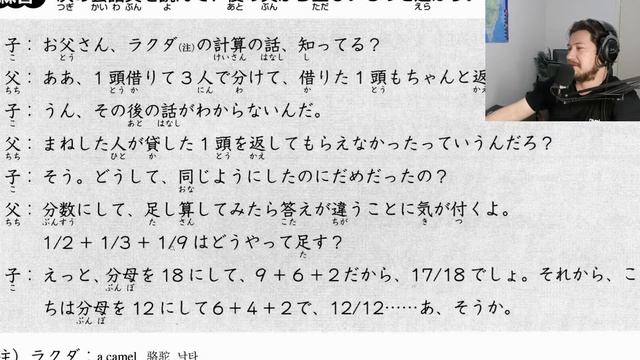 子：お父さん、ラクダ(注)の計算の話、知ってる？
父：ああ、1頭借りて3人で分けて、借りた1頭もちゃんと返
子：うん、その後の話がわからないんだ。
父：まねした人が貸した1頭を返してもらえなかったっていうんだろ？
子：そう。どうして、同じようにしたのにだめだったの？
父：分数にして、足し算してみたら答えが違うことに気が付くよ。
1/2 + 1/3 + 1/9はどうやって足す？
子：えっと、分母を18にして、9+6+2だから、17/18でしょ。それから、こ
ちは分母を12にして6+4+2で、12/12……あ、そうか。
注）ラクダ：a camel 骆驼 낙타